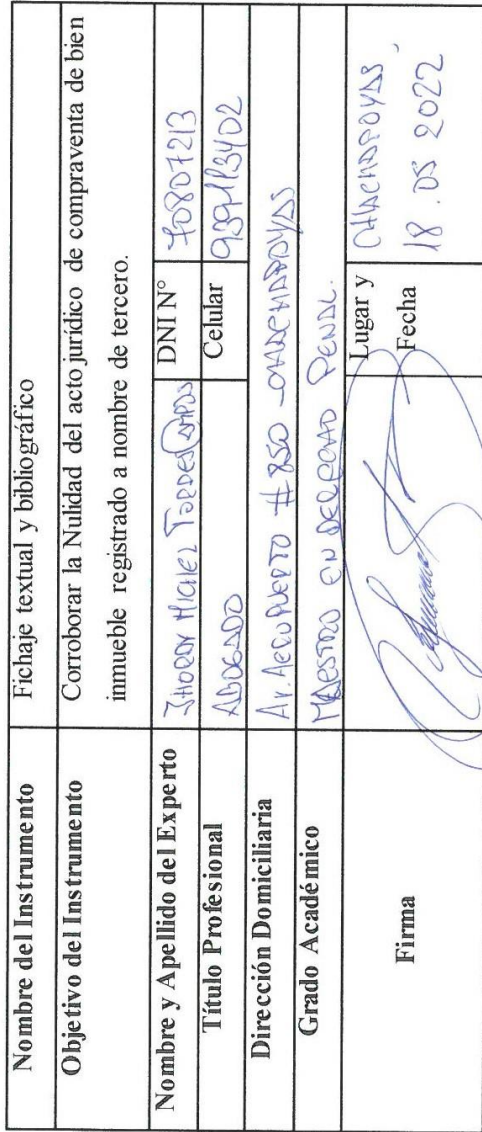 Nombre del Instrumento Fichaje textual y bibliográfico
Objetivo del Instrumento Corroborar la Nulidad del acto jurídico de compraventa de bien
inmueble registrado a nombre de tercero.
Nombre y Apellido del Experto JHORDY MICHEL TORRES CAMPOS DNI N° 70807213
Título Profesional ABOGADO Celular
Dirección Domiciliaria AV. AEROPUERTO # 850 - CHACHAPOYAS
Grado Académico MAESTRO EN DERECHO PENAL.
Firma Lugar y Fecha CHACHAPOYAS,
18.05 2022